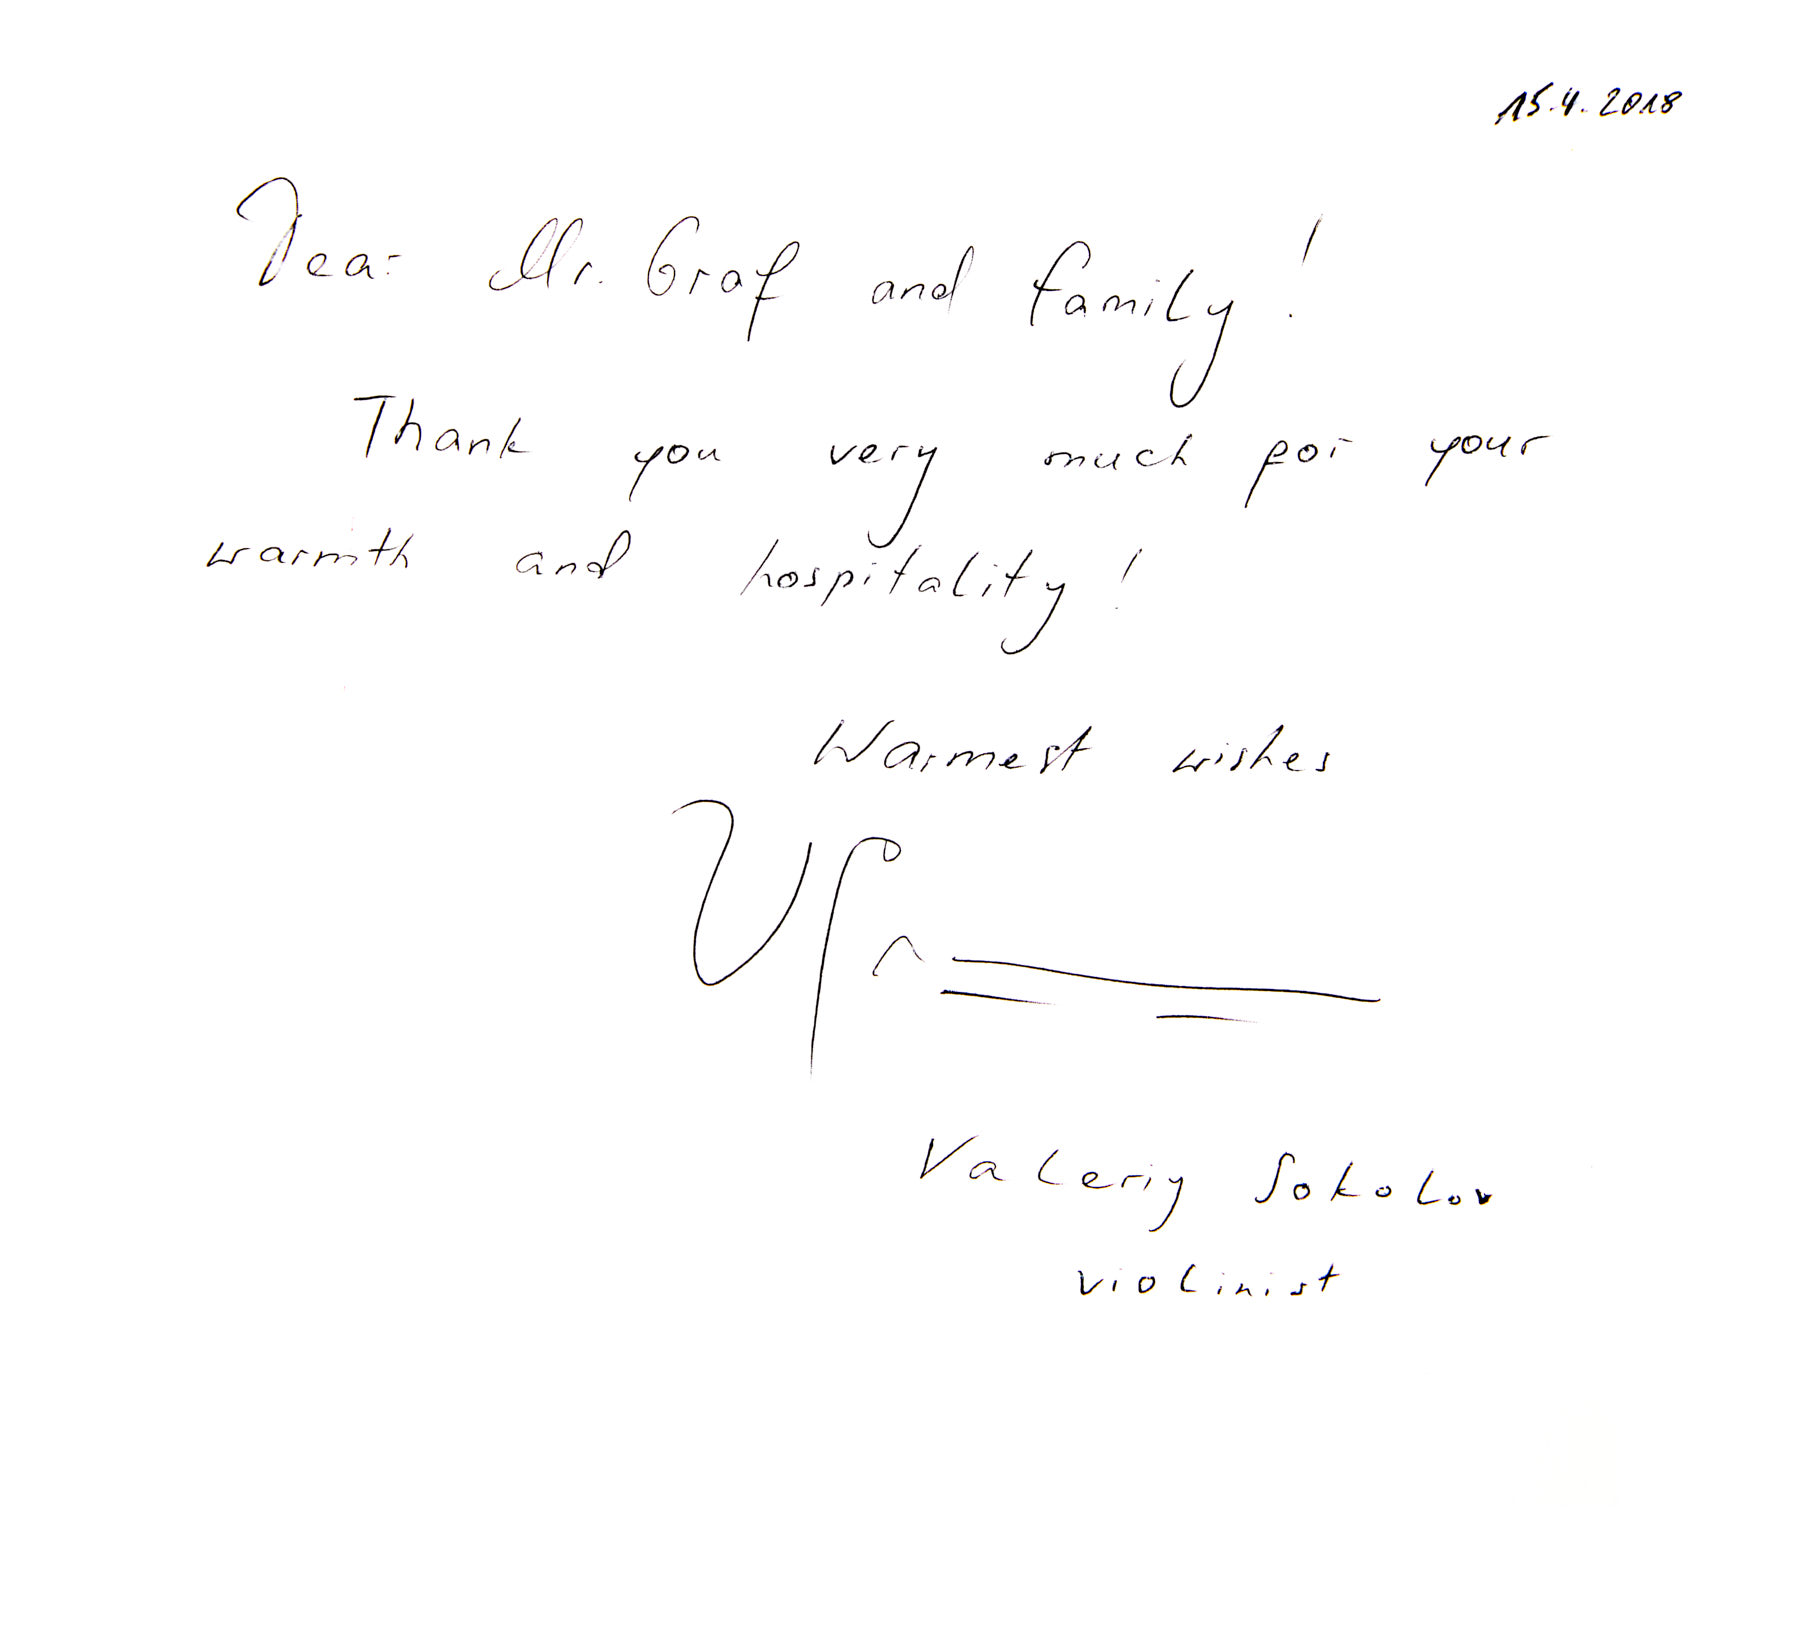 15.4.2018
Dear Mr. Graf and family!
Thank you very much for your
warmth and hospitality!
Warmest wishes
Valeriy Sokolov
violinist